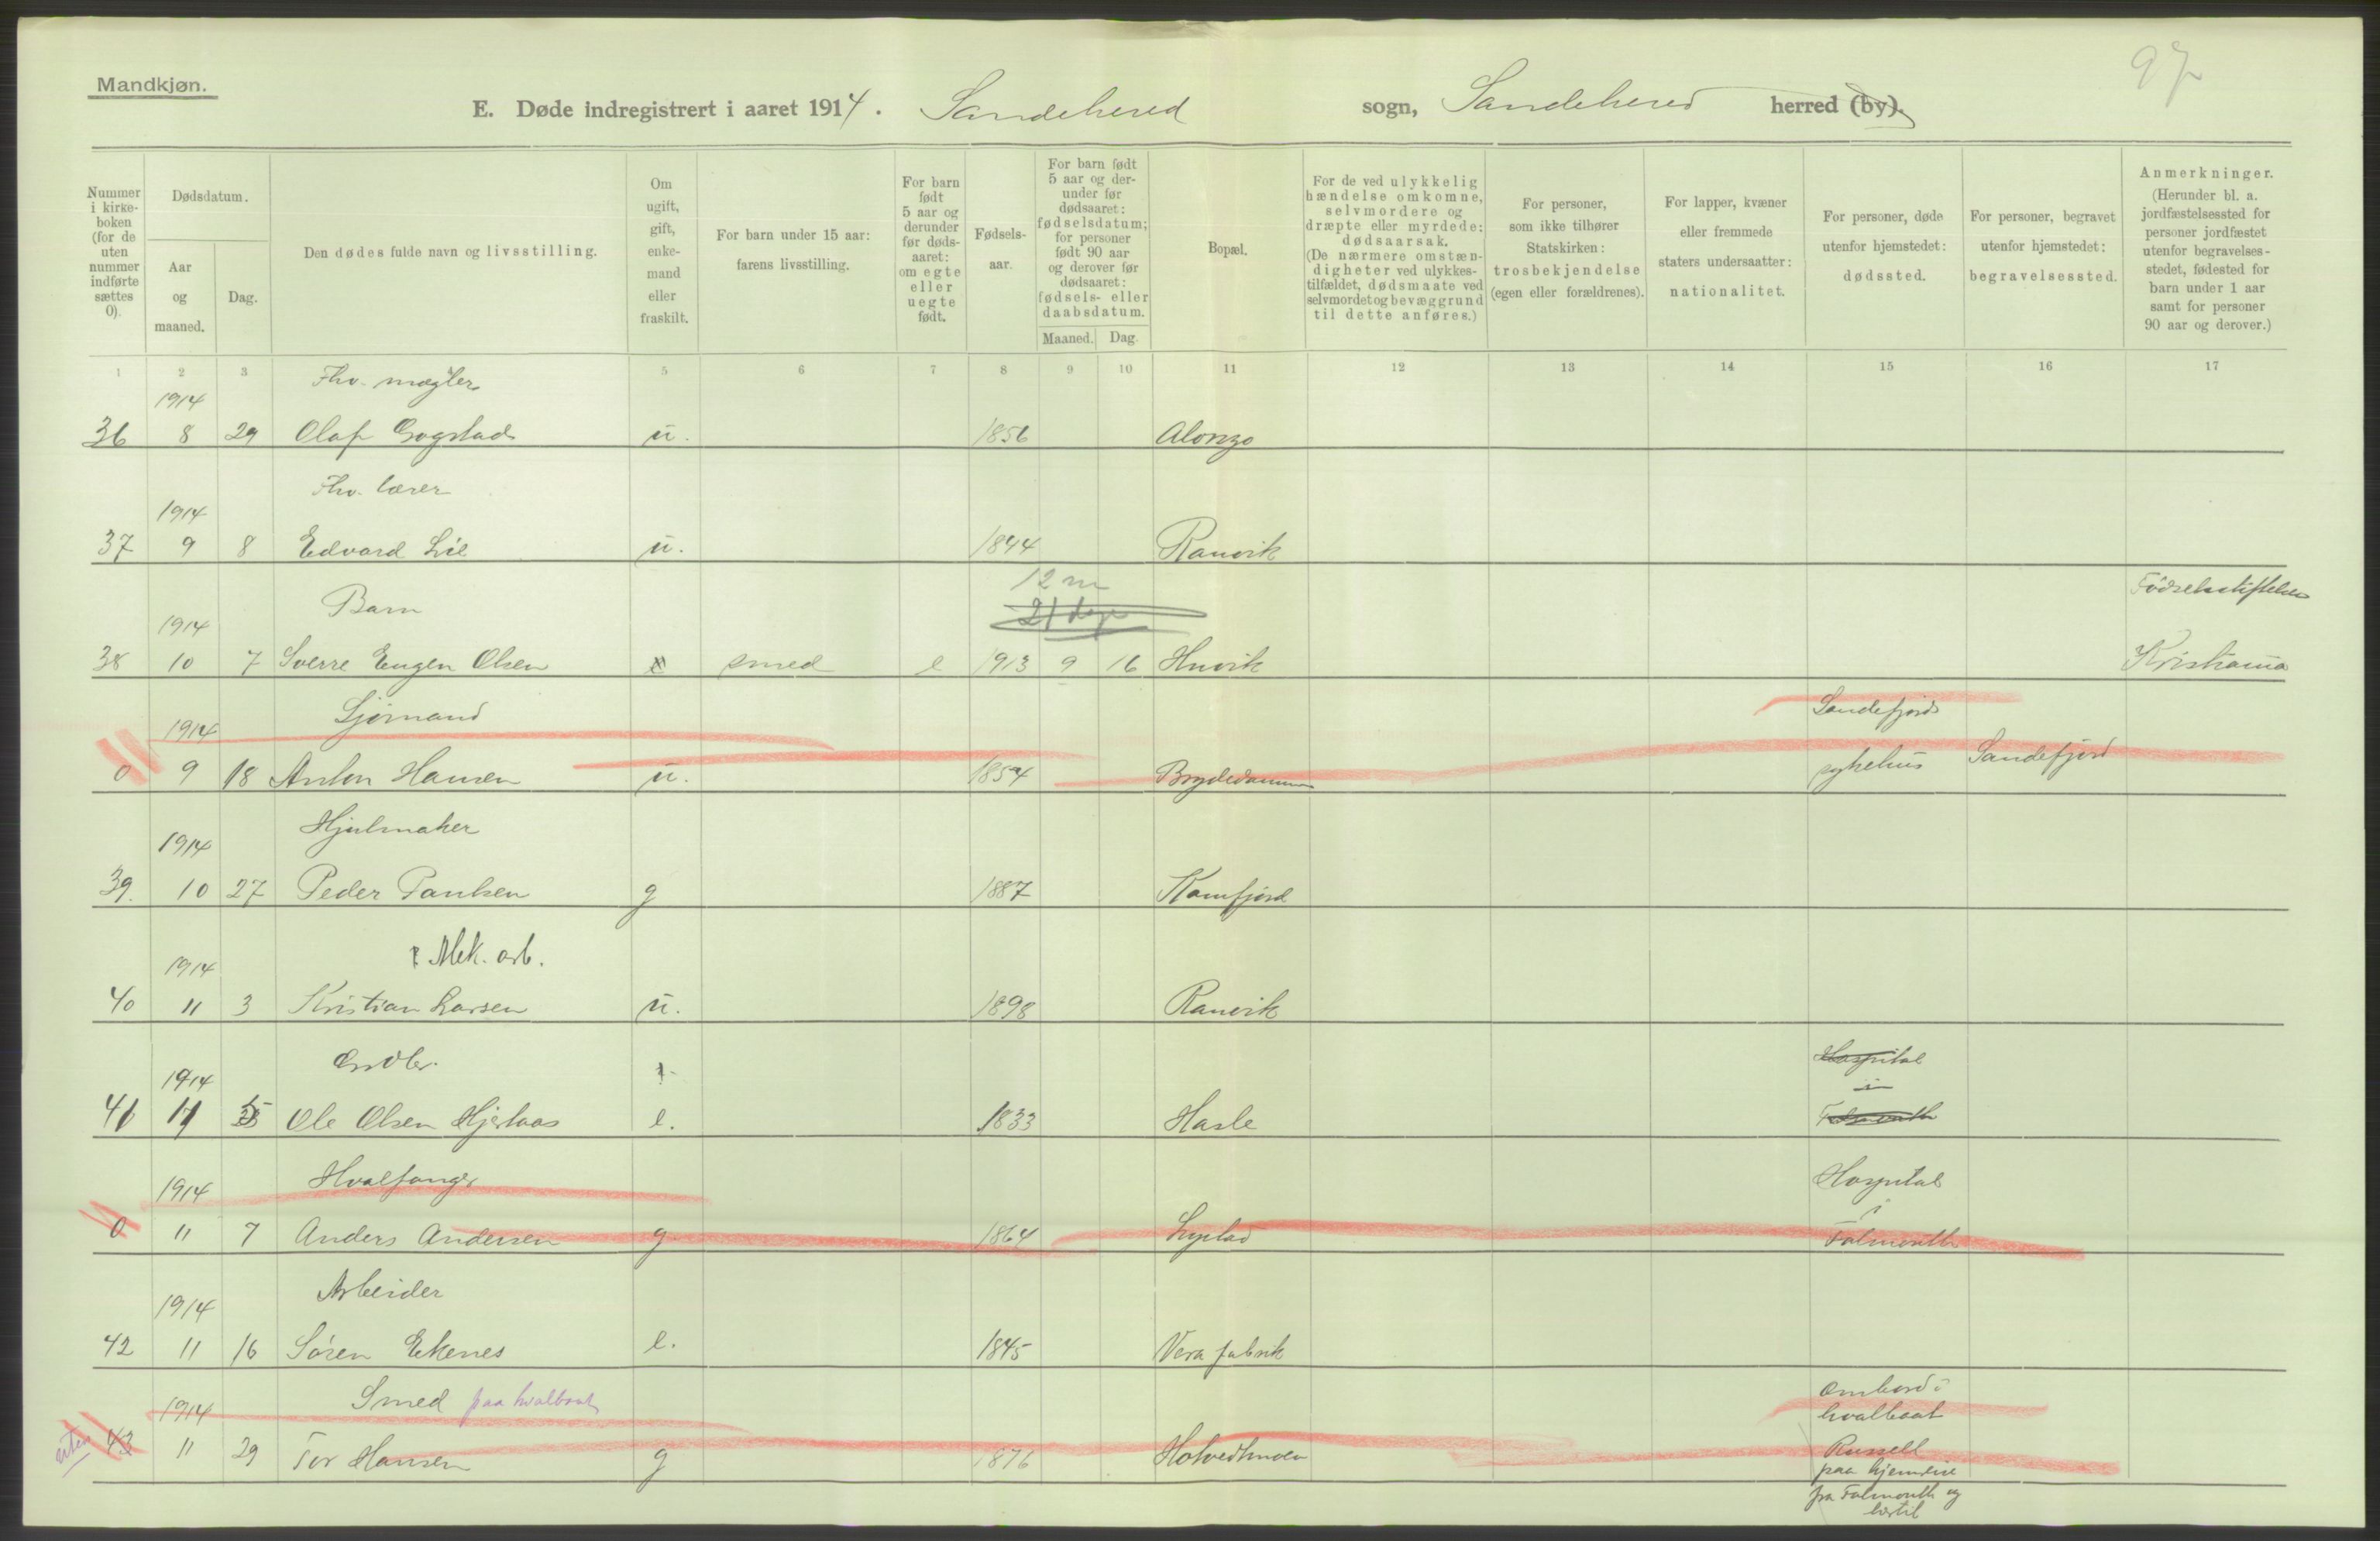 97
Mandkjøn.
E. Døde indregistrert i aaret 1914. Sandeherred sogn, Sandeherred herred (by).
Nummer i kirke-boken (for de uten nummer indførte sættes 0).
Dødsdatum.
Aar og maaned.
Dag.
Den dødes fulde navn og livsstilling.
Om ugift, gift, enke-mand eller fraskilt.
For barn under 15 aar: farens livsstilling.
For barn født 5 aar og derunder før døds-aaret: om egte eller uegte født.
Fødsels-aar.
For barn født 5 aar og der-under før dødsaaret: fødselsdatum; for personer født 90 aar og derover før dødsaaret: fødsels- eller daabsdatum.
Maaned. Dag.
Bopæl.
For de ved ulykkelig hændelse omkomne, selvmordere og dræpte eller myrdede: dødsaarsak. (De nærmere omstæn-digheter ved ulykkes-tilfældet, dødsmaate ved selvmordet og bevæggrund til dette anføres.)
For personer, som ikke tilhører Statskirken: trosbekjendelse (egen eller forældrenes).
For lapper, kvæner eller fremmede staters undersaatter: nationalitet.
For personer, døde utenfor hjemstedet: dødssted.
For personer, begravet utenfor hjemstedet: begravelsessted.
Anmerkninger. (Herunder bl. a. jordfæstelsessted for personer jordfæstet utenfor begravelses-stedet, fødested for barn under 1 aar samt for personer 90 aar og derover.)
1 2 3 4 5 6 7 8 9 10 11 12 13 14 15 16 17
1914 Fhv. mægler
36 8 29 Olaf Gogstad u. 1856 Alonzo
1914 Fhv. lærer
37 9 8 Edvard Lie u. 1844 Ranvik
12 m
21 dage
1914 Barn Fødselsstiftelsen
38 10 7 Sverre Eugen Olsen smed e 1913 9 16 Huvik Kristiania
1914 Sjømand Sandefjords
0 9 18 Anton Hansen u. 1854 Brydedammen sykehus Sandefjord
1914 Hjulmaker
39. 10 27 Peder Paulsen g 1887 Kamfjord
1914 Mek. arb.
40 11 3 Kristian Larsen u. 1898 Ranvik
1914 Hospital
i
41 11 5 Ole Olsen Hjertaas e. 1833 Hasle Falmouth
1914 Hvalfanger Hospital
i
0 11 7 Anders Andersen g 1864 Falmouth
1914 Arbeider
42 11 16 Søren Ekenes e. 1845 Vera fabrik
1914 Smed paa hvalbaat ombord i
hvalbaat
43 11 29 Tor Hansen g 1876 Russell
paa hjemreise
fra Falmouth og